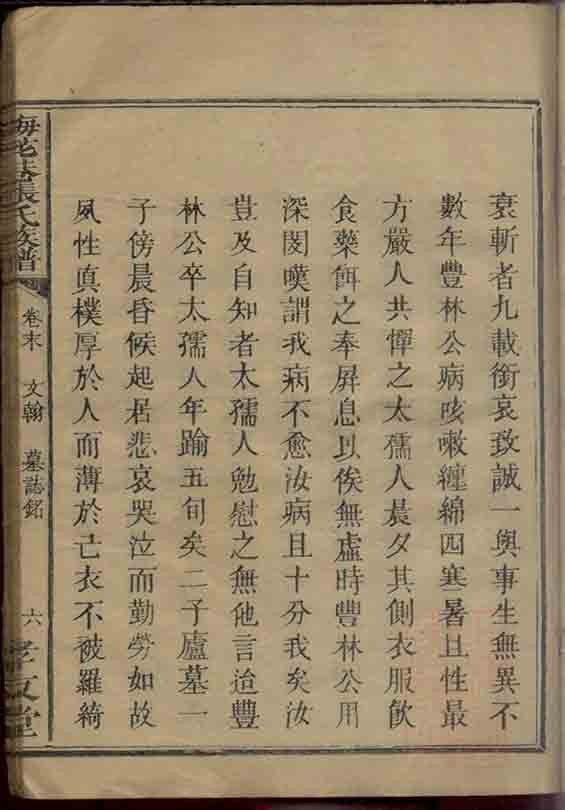 衰斬者九載銜哀致誠一與事生無異不
數年豐林公病咳嗽纏綿四寒暑且性最
方嚴人共憚之太孺人晨夕其側衣服飲
食藥餌之奉屏息以俟無虛時豐林公用
深閔嘆謂我病不愈汝病且十分我矣汝
豈及自知者太孺人勉慰之無他言迨豐
林公卒太孺人年踰五旬矣二子廬墓一
子傍晨昏候起居悲哀哭泣而勤勞如故
夙性真樸厚於人而薄於己衣不被羅綺
梅花巷張氏族譜
卷末 文翰 墓誌銘 六
孝友堂